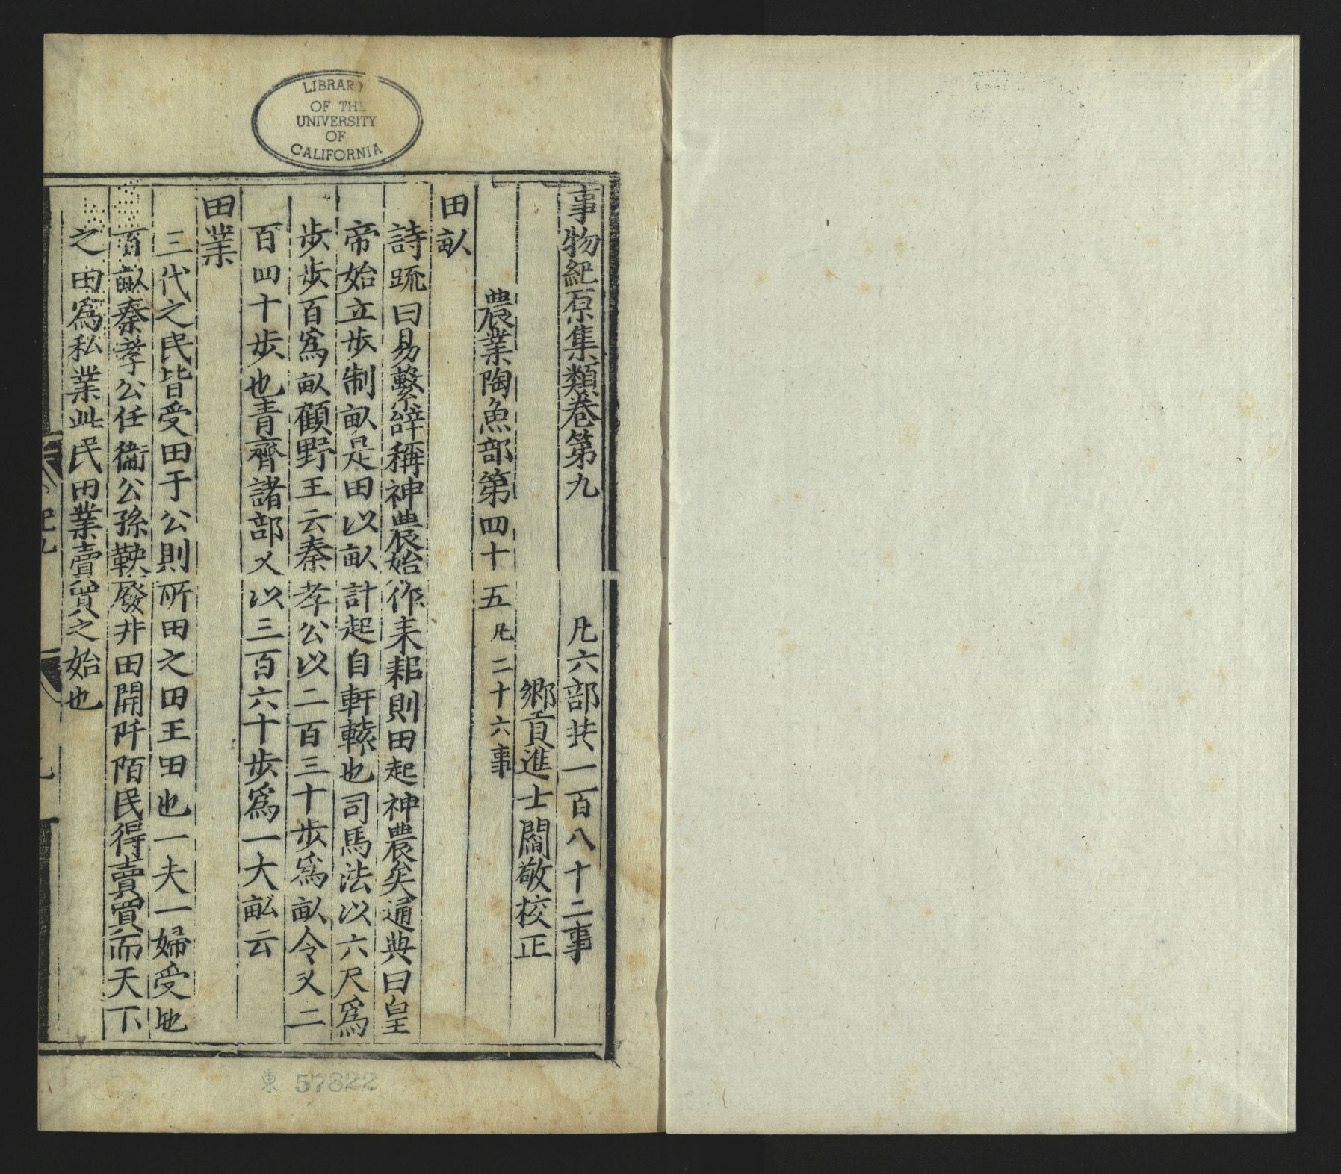 LIBRARY
OF THE
UNIVERSITY
OF
CALIFORNIA
事物紀原集類卷第九　凡六部共一百八十二事
鄉貢進士閻敬校正
農業陶魚部第四十五　凡二十六事
田畝
詩疏曰易繫辝稱神農始作耒耜則田起神農矣通典曰皇
帝始立歩制畝是田以畝計起自軒轅也司馬法以六尺爲
歩歩百爲畝顧野王云秦孝公以二百三十歩爲畝今又二
百四十歩也青齊諸部又以三百六十歩爲一大畝云
田業
三代之民皆受田于公則所田之田王田也一夫一婦受地
百畝秦孝公任衞公孫鞅廢井田開阡陌民得賣買而天下
之田爲私業此民田業賣買之始也
東 57822